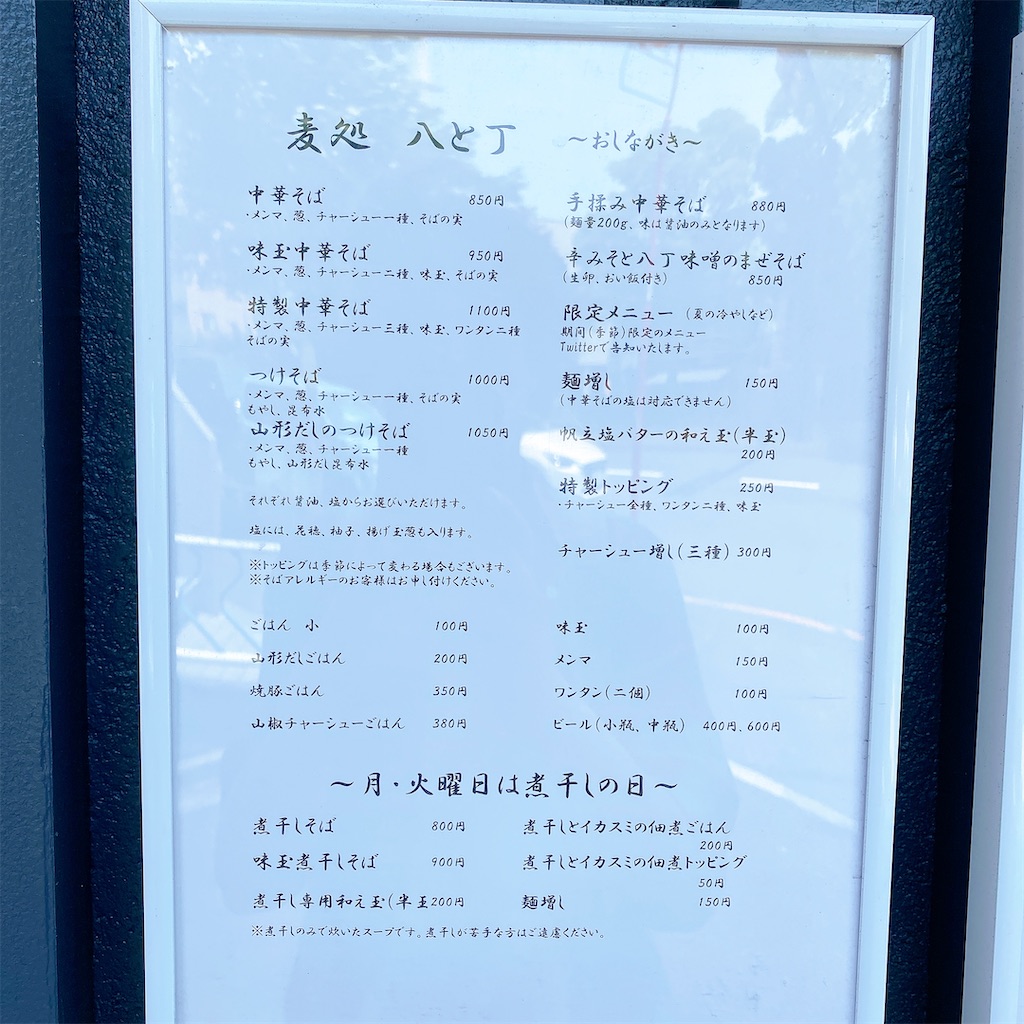 麦処 八と丁 〜おしながき〜
中華そば 850円
・メンマ、葱、チャーシュー一種、そばの実
味玉中華そば 950円
・メンマ、葱、チャーシュー二種、味玉、そばの実
特製中華そば 1100円
・メンマ、葱、チャーシュー三種、味玉、ワンタン二種
そばの実
つけそば 1000円
・メンマ、葱、チャーシュー一種、そばの実
もやし、昆布水
山形だしのつけそば 1050円
・メンマ、葱、チャーシュー一種
もやし、山形だし昆布水
それぞれ醤油、塩からお選びいただけます。
塩には、花穂、柚子、揚げ玉葱も入ります。
※トッピングは季節によって変わる場合もございます。
※そばアレルギーのお客様はお申し付けください。
手揉み中華そば 880円
(麺量200g、味は醤油のみとなります)
辛みそと八丁味噌のまぜそば
(生卵、おい飯付き) 850円
限定メニュー (夏の冷やしなど)
期間(季節)限定のメニュー
Twitterで告知いたします。
麺増し 150円
(中華そばの塩は対応できません)
帆立塩バターの和え玉(半玉)
200円
特製トッピング 250円
・チャーシュー全種、ワンタン二種、味玉
チャーシュー増し(三種) 300円
ごはん 小 100円
山形だしごはん 200円
焼豚ごはん 350円
山椒チャーシューごはん 380円
味玉 100円
メンマ 150円
ワンタン(二個) 100円
ビール(小瓶、中瓶) 400円、600円
〜月・火曜日は煮干しの日〜
煮干しそば 800円
味玉煮干しそば 900円
煮干し専用和え玉(半玉200円
煮干しとイカスミの佃煮ごはん
200円
煮干しとイカスミの佃煮トッピング
50円
麺増し 150円
※煮干しのみで炊いたスープです。煮干しが苦手な方はご遠慮ください。